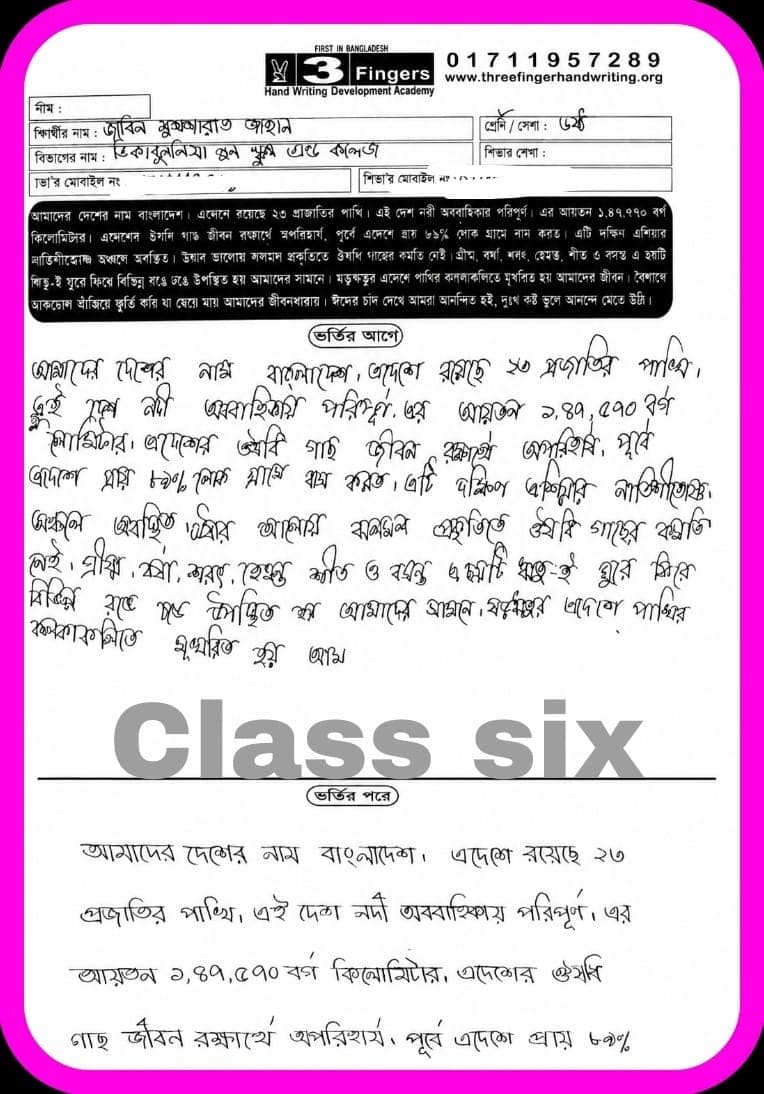 FIRST IN BANGLADESH
3 Fingers
Hand Writing Development Academy
01711957289
www.threefingerhandwriting.org
নাম :
শিক্ষার্থীর নাম : জাবিন মুশশারাত জাহান
শ্রেনি / সেশা : ৬ষ্ঠ
বিভাগের নাম : ভিকারুননিসা নুন স্কুল এন্ড কলেজ
শিভার শেখা :
ভা'র মোবাইল নং
শিভা'র মোবাইল নং
আমাদের দেশের নাম বাংলাদেশ। এদেশে রয়েছে ২৩ প্রজাতির পাখি। এই দেশ নদী অববাহিকার পরিপূর্ণ। এর আয়তন ১,৪৭,৫৭০ বর্গ
কিলোমিটার। এদেশের ঔষধি গাছ জীবন রক্ষার্থে অপরিহার্য, পূর্বে এদেশে প্রায় ৮৯% লোক গ্রামে বাস করত। এটি দক্ষিণ এশিয়ার
নাতিশীতোষ্ণ অঞ্চলে অবস্থিত। উষার আলোয় ঝলমল প্রকৃতিতে ঔষধি গাছের কমতি নেই। গ্রীষ্ম, বর্ষা, শরৎ, হেমন্ত, শীত ও বসন্ত এ ছয়টি
ঋতু-ই ঘুরে ফিরে বিভিন্ন রঙে ঢঙে উপস্থিত হয় আমাদের সামনে। ষড়ঋতুর এদেশে পাখির কলকাকলিতে মুখরিত হয় আমাদের জীবন। বৈশাখে
ফুর্তি করি যা ছেয়ে যায় আমাদের জীবনধারায়। ঈদের চাঁদ দেখে আমরা আনন্দিত হই, দুঃখ কষ্ট ভুলে আনন্দে মেতে উঠি।
ভর্তির আগে
আমাদের দেশের নাম বাংলাদেশ, এদেশে রয়েছে ২৩ প্রজাতির পাখি,
এই দেশ নদী অববাহিকায় পরিপূর্ণ, এর আয়তন ১,৪৭,৫৭০ বর্গ
লোমিটার, এদেশের ঔষধি গাছ জীবন রক্ষার্থে অপরিহার্য, পূর্বে
এদেশে প্রায় ৮৯% লোক গ্রামে বাস করত, এটি দক্ষিণ এশিয়ার নাতিশীতোষ্ণ
অঞ্চলে অবস্থিত, উষার আলোয় ঝলমল প্রকৃতিতে ঔষধি গাছের কমতি
নেই, গ্রীষ্ম, বর্ষা, শরৎ, হেমন্ত শীত ও বসন্ত এ ছয়টি ঋতু-ই ঘুরে ফিরে
বিভিন্ন রঙে ঢঙে উপস্থিত হয় আমাদের সামনে, ষড়ঋতুর এদেশে পাখির
কলকাকলিতে মুখরিত হয় আম
Class six
ভর্তির পরে
আমাদের দেশের নাম বাংলাদেশ, এদেশে রয়েছে ২৩
প্রজাতির পাখি, এই দেশ নদী অববাহিকায় পরিপূর্ণ, এর
আয়তন ১,৪৭,৫৭০ বর্গ কিলোমিটার, এদেশের ঔষধি
গাছ জীবন রক্ষার্থে অপরিহার্য, পূর্বে এদেশে প্রায় ৮৯%